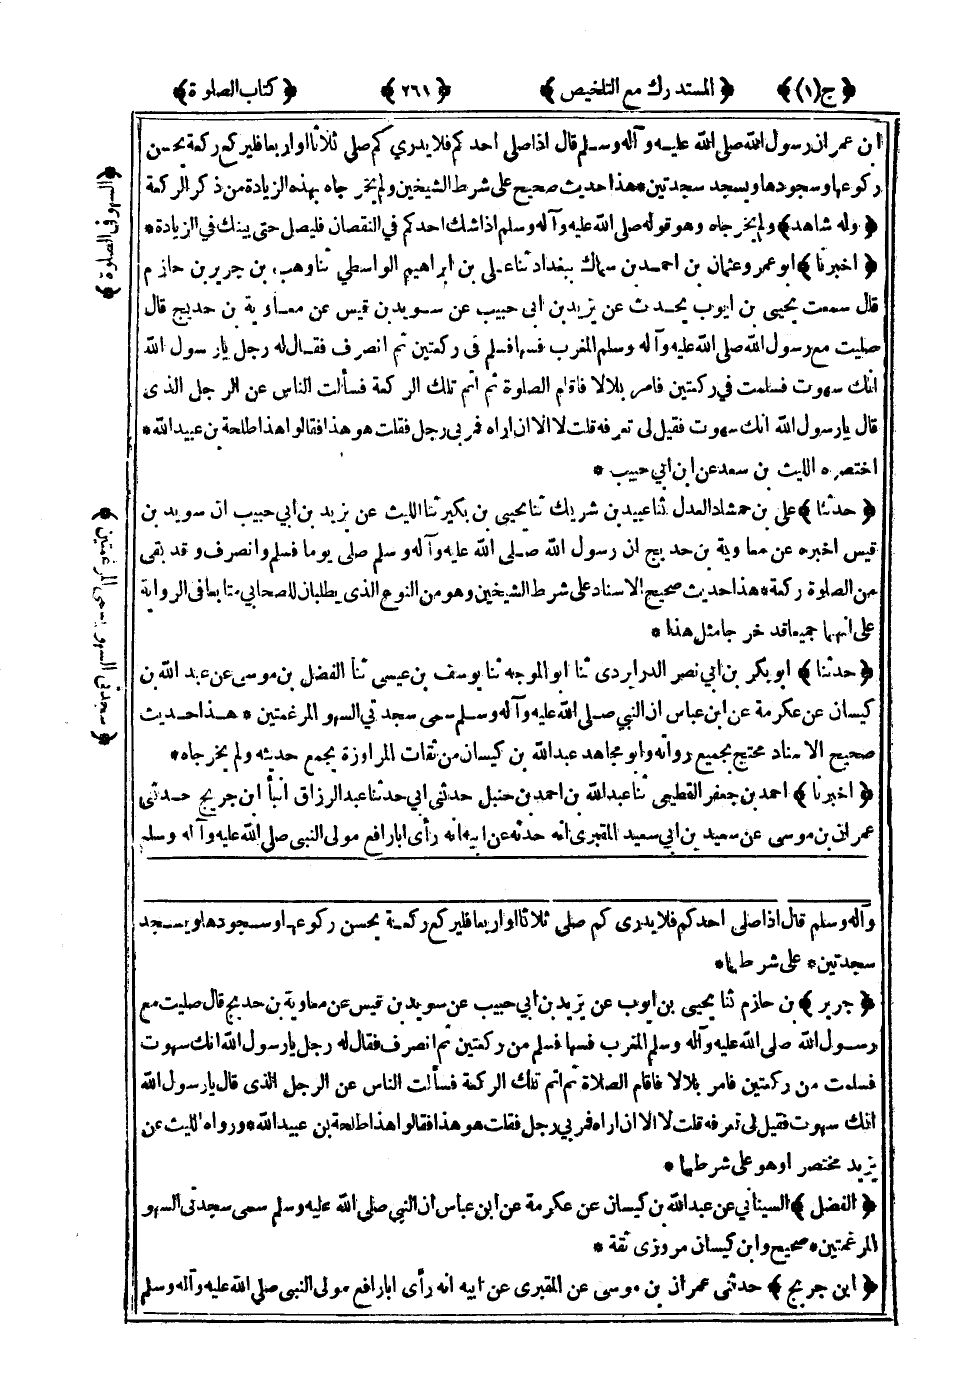 ﴿ ج (١) ﴾ ﴿ المستدرك مع التلخيص ﴾ ﴿ ٢٦١ ﴾ ﴿ كتاب الصلوة ﴾
ابن عمر ان رسول الله صلى الله عليه وآله وسلم قال اذا صلى احدكم فلا يدري كم صلى ثلاثا او اربعا فليركع ركعة يحسن
ركوعها وسجودها ويسجد سجدتين * هذا حديث صحيح على شرط الشيخين ولم يخرجاه بهذه الزيادة من ذكر الركعة
﴿ وله شاهد ﴾ ولم يخرجاه وهو قوله صلى الله عليه وآله وسلم اذا شك احدكم في النقصان فليصل حتى يشك في الزيادة *
﴿ اخبرنا ﴾ ابو عمرو عثمان بن احمد بن سماك ببغداد ثنا علي بن ابراهيم الواسطي ثنا وهب بن جرير بن حازم
قال سمعت يحيى بن ايوب يحدث عن يزيد بن ابى حبيب عن سويد بن قيس عن معاوية بن حديج قال
صليت مع رسول الله صلى الله عليه وآله وسلم المغرب فسها فسلم فى ركعتين ثم انصرف فقال له رجل يا رسول الله
انك سهوت فسلمت في ركعتين فامر بلالا فاقام الصلوة ثم اتم تلك الركعة فسألت الناس عن الرجل الذى
قال يا رسول الله انك سهوت فقيل لى تعرفه قلت لا الا ان اراه فمر بى رجل فقلت هو هذا فقالوا هذا طلحة بن عبيد الله *
اختصره الليث بن سعد عن ابن ابي حبيب *
﴿ حدثنا ﴾ علي بن حمشاد العدل ثنا عبيد بن شريك ثنا يحيى بن بكير ثنا الليث عن يزيد بن أبي حبيب ان سويد بن
قيس اخبره عن معاوية بن حديج ان رسول الله صلى الله عليه وآله وسلم صلى يوما فسلم وانصرف وقد بقى
من الصلوة ركعة * هذا حديث صحيح الاسناد على شرط الشيخين وهو من النوع الذى يطلبان للصحابي متابعا فى الرواية
على انهما جميعا قد خرجا مثل هذا *
﴿ حدثنا ﴾ ابو بكر بن ابي نصر الدرابردى ثنا ابو الموجه ثنا يوسف بن عيسى ثنا الفضل بن موسى عن عبد الله بن
كيسان عن عكرمة عن ابن عباس ان النبي صلى الله عليه وآله وسلم سمى سجدتي السهو المرغمتين * هذا حديث
صحيح الاسناد محتج بجميع رواته وابو مجاهد عبد الله بن كيسان من ثقات المراوزة يجمع حديثه ولم يخرجاه *
﴿ اخبرنا ﴾ احمد بن جعفر القطيعى ثنا عبد الله بن احمد بن حنبل حدثنى ابى حدثنا عبد الرزاق انبأ ابن جريج حدثنى
عمران بن موسى عن سعيد بن ابي سعيد المقبرى انه حدثه عن ابيه انه رأى ابا رافع مولى النبى صلى الله عليه وآله وسلم
وآله وسلم قال اذا صلى احدكم فلا يدرى كم صلى ثلاثا او اربعا فليركع ركعة يحسن ركوعها وسجودها ويسجد
سجدتين * على شرطهما *
﴿ جرير ﴾ بن حازم ثنا يحيى بن ايوب عن يزيد بن ابي حبيب عن سويد بن قيس عن معاوية بن حديج قال صليت مع
رسول الله صلى الله عليه وآله وسلم المغرب فسها فسلم من ركعتين ثم انصرف فقال له رجل يا رسول الله انك سهوت
فسلمت من ركعتين فامر بلالا فاقام الصلاة ثم اتم تلك الركعة فسألت الناس عن الرجل الذى قال يا رسول الله
انك سهوت فقيل لى تعرفه قلت لا الا ان اراه فمر بي رجل فقلت هو هذا فقالوا هذا طلحة بن عبيد الله * ورواه الليث عن
يزيد مختصرا وهو على شرطهما *
﴿ الفضل ﴾ السينانى عن عبد الله بن كيسان عن عكرمة عن ابن عباس ان النبي صلى الله عليه وسلم سمى سجدتى السهو
المرغمتين * صحيح وابن كيسان مروزى ثقة *
﴿ ابن جريج ﴾ حدثنى عمران بن موسى عن المقبرى عن ابيه انه رأى ابا رافع مولى النبى صلى الله عليه وآله وسلم
﴿ السهو فى الصلوة ﴾
﴿ سجدتى السهو يسمى المرغمتين ﴾